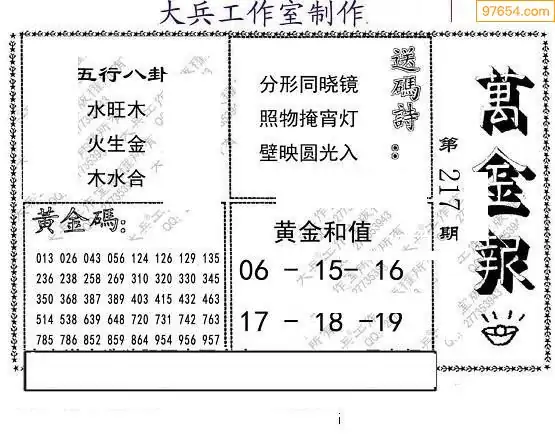 大兵工作室制作
97654.com
五行八卦
水旺木
火生金
木水合
送碼詩:
分形同晓镜
照物掩宵灯
壁映圆光入
萬金報
第217期
黃金碼:
013 026 043 056 124 126 129 135
236 238 258 269 310 320 330 345
350 368 387 389 403 415 432 463
514 538 639 648 720 731 742 763
785 786 852 859 864 954 956 957
黄金和值
06 - 15- 16
17 - 18 -19
i